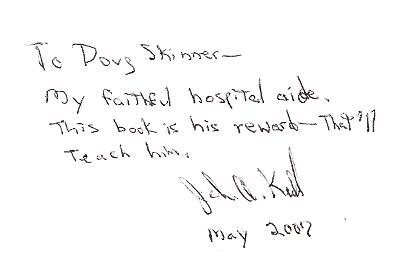 To Doug Skinner—
My faithful hospital aide.
This book is his reward—That'll
Teach him.
John A. Keel
May 2007